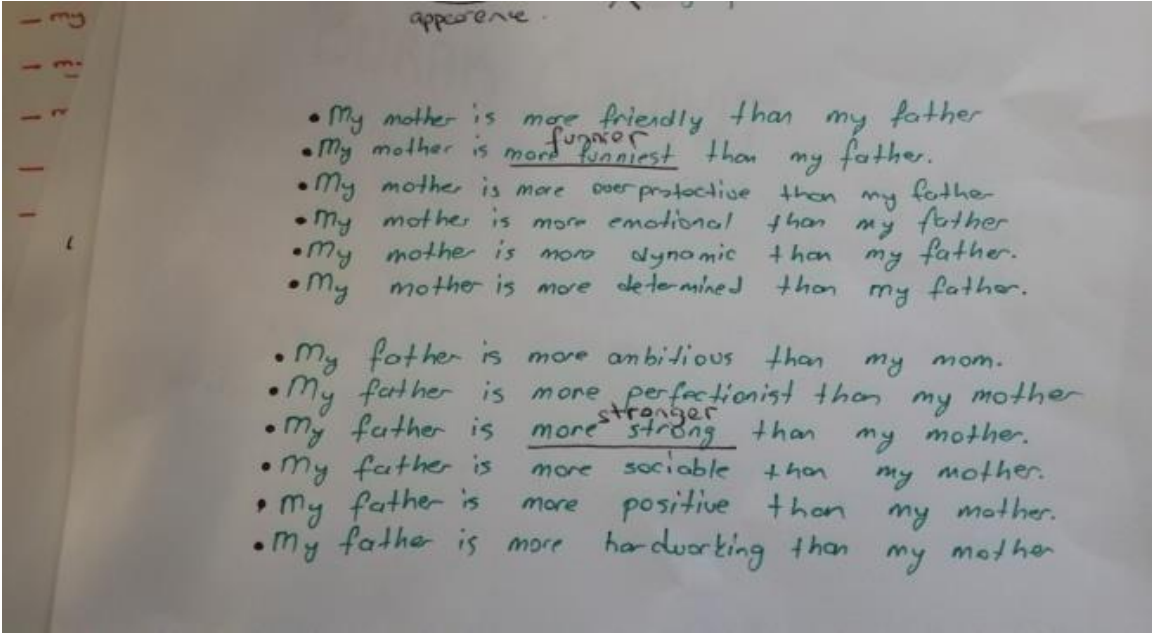 - my
appearence.
• My mother is more friendly than my father
funnier
• My mother is more funniest than my father.
• My mother is more overprotective than my father
• My mother is more emotional than my father
• My mother is more dynamic than my father.
• My mother is more determined than my father.
• My father is more ambitious than my mom.
• My father is more perfectionist than my mother
stronger
• My father is more strong than my mother.
• My father is more sociable than my mother.
• My father is more positive than my mother.
• My father is more hardworking than my mother